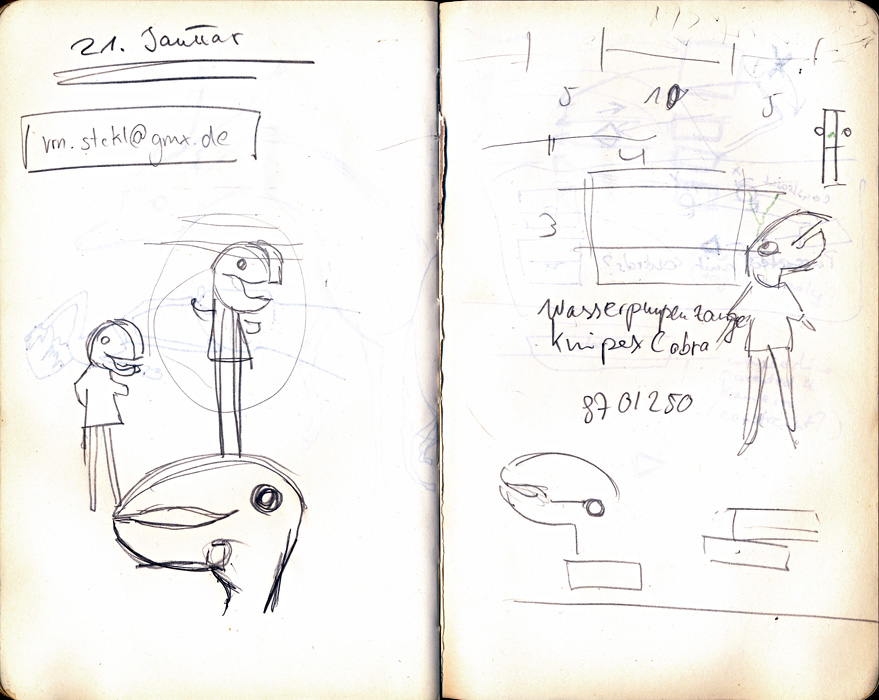 21. Januar
vm.stekl@gmx.de
5 10 5
4
3
Wasserpumpenzange
Knipex Cobra
87 01 250